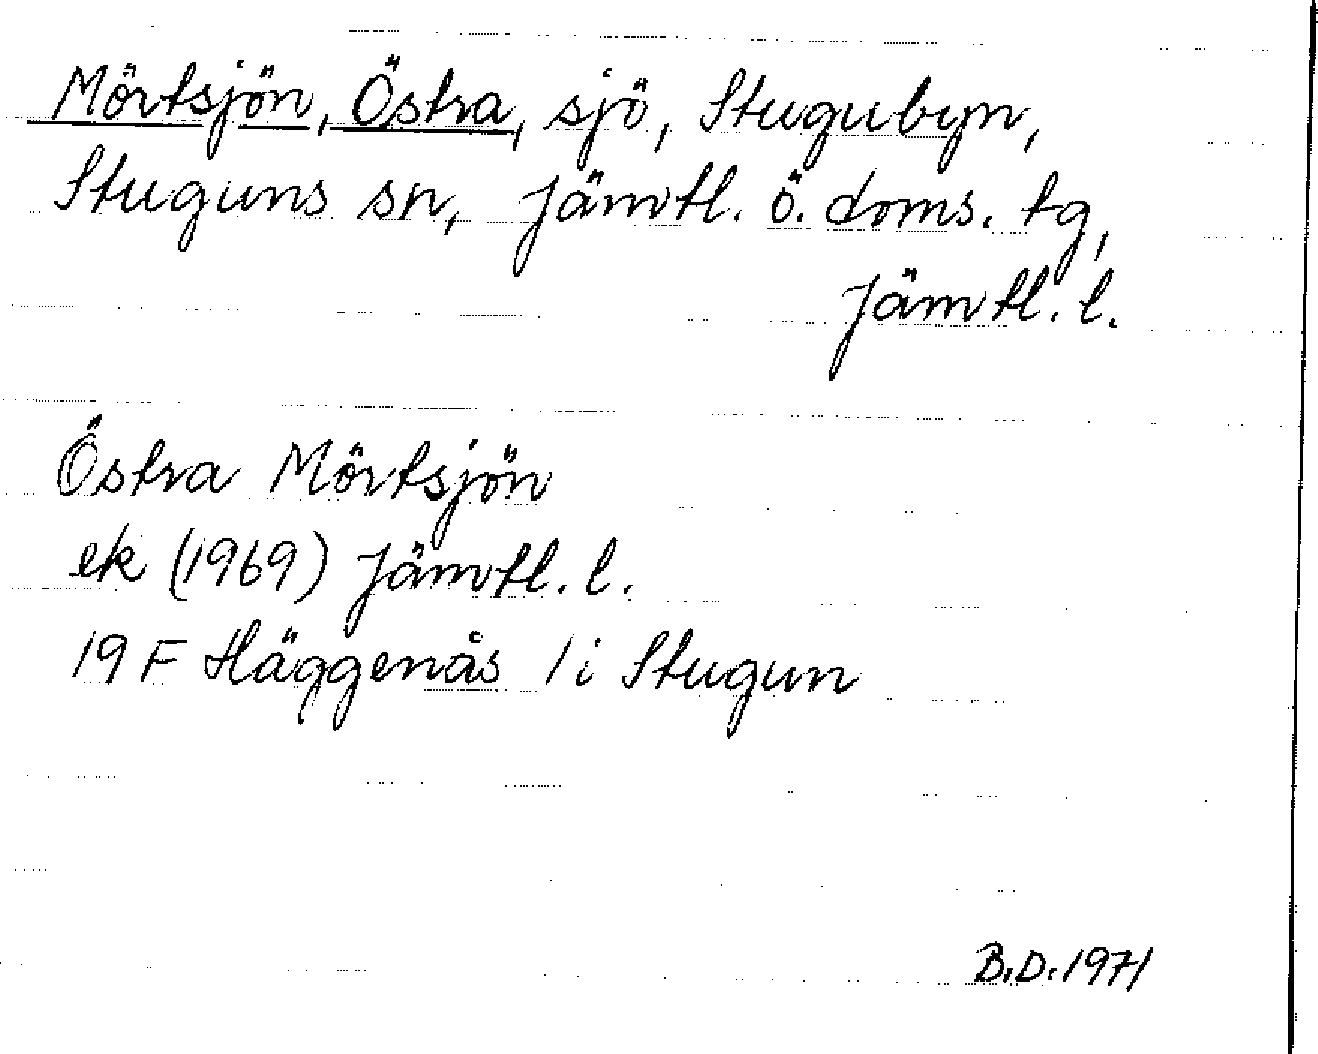 Mörtsjön, Östra, sjö, Stugubyn,
Stuguns sn, Jämtl. ö. doms. tg,
Jämtl. l.
Östra Mörtsjön
ek (1969) Jämtl. l.
19 F Häggenås 1 i Stugun
B.D. 1971